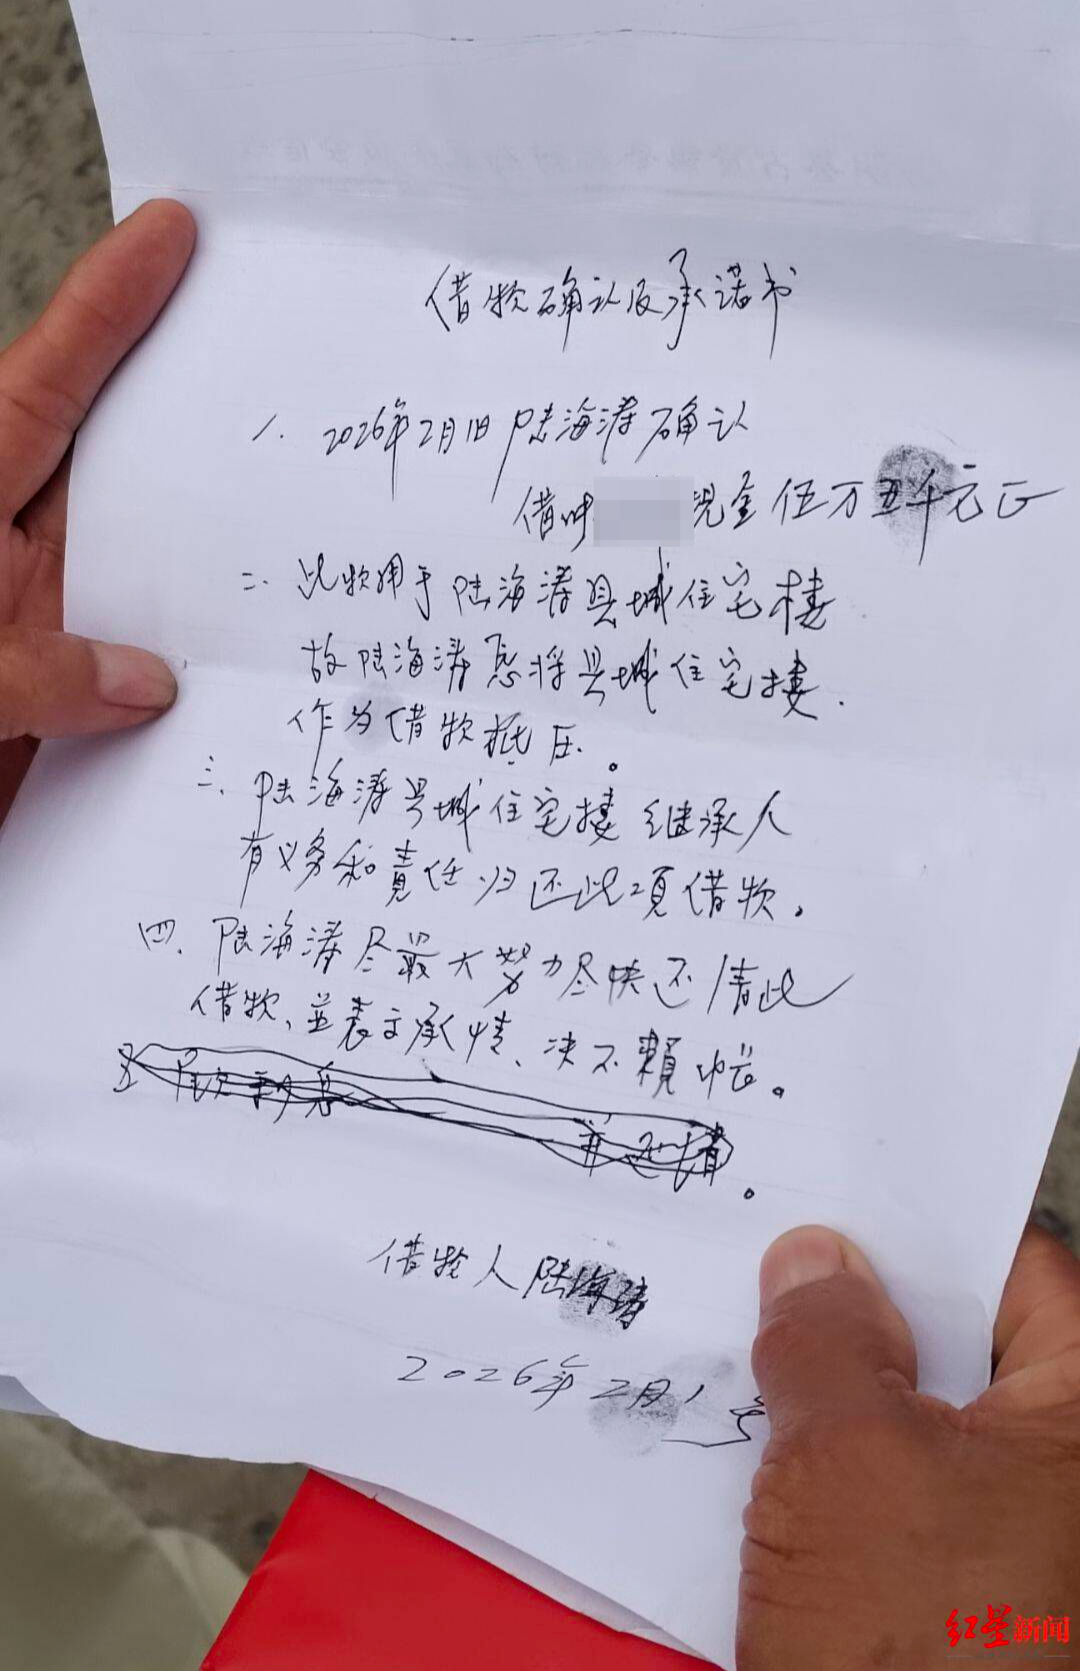 借款确认及承诺书
一. 2026年2月1日陆海涛确认
借叶 现金伍万五千元正
二. 此款用于陆海涛县城住宅楼
故陆海涛愿将县城住宅楼.
作为借款抵压。
三. 陆海涛县城住宅楼继承人
有义务和责任归还此项借款。
四. 陆海涛尽最大努力尽快还清此
借款、並表示承情、决不賴帐。
五
并还清。
借款人陆海涛
2026年2月1号
红星新闻